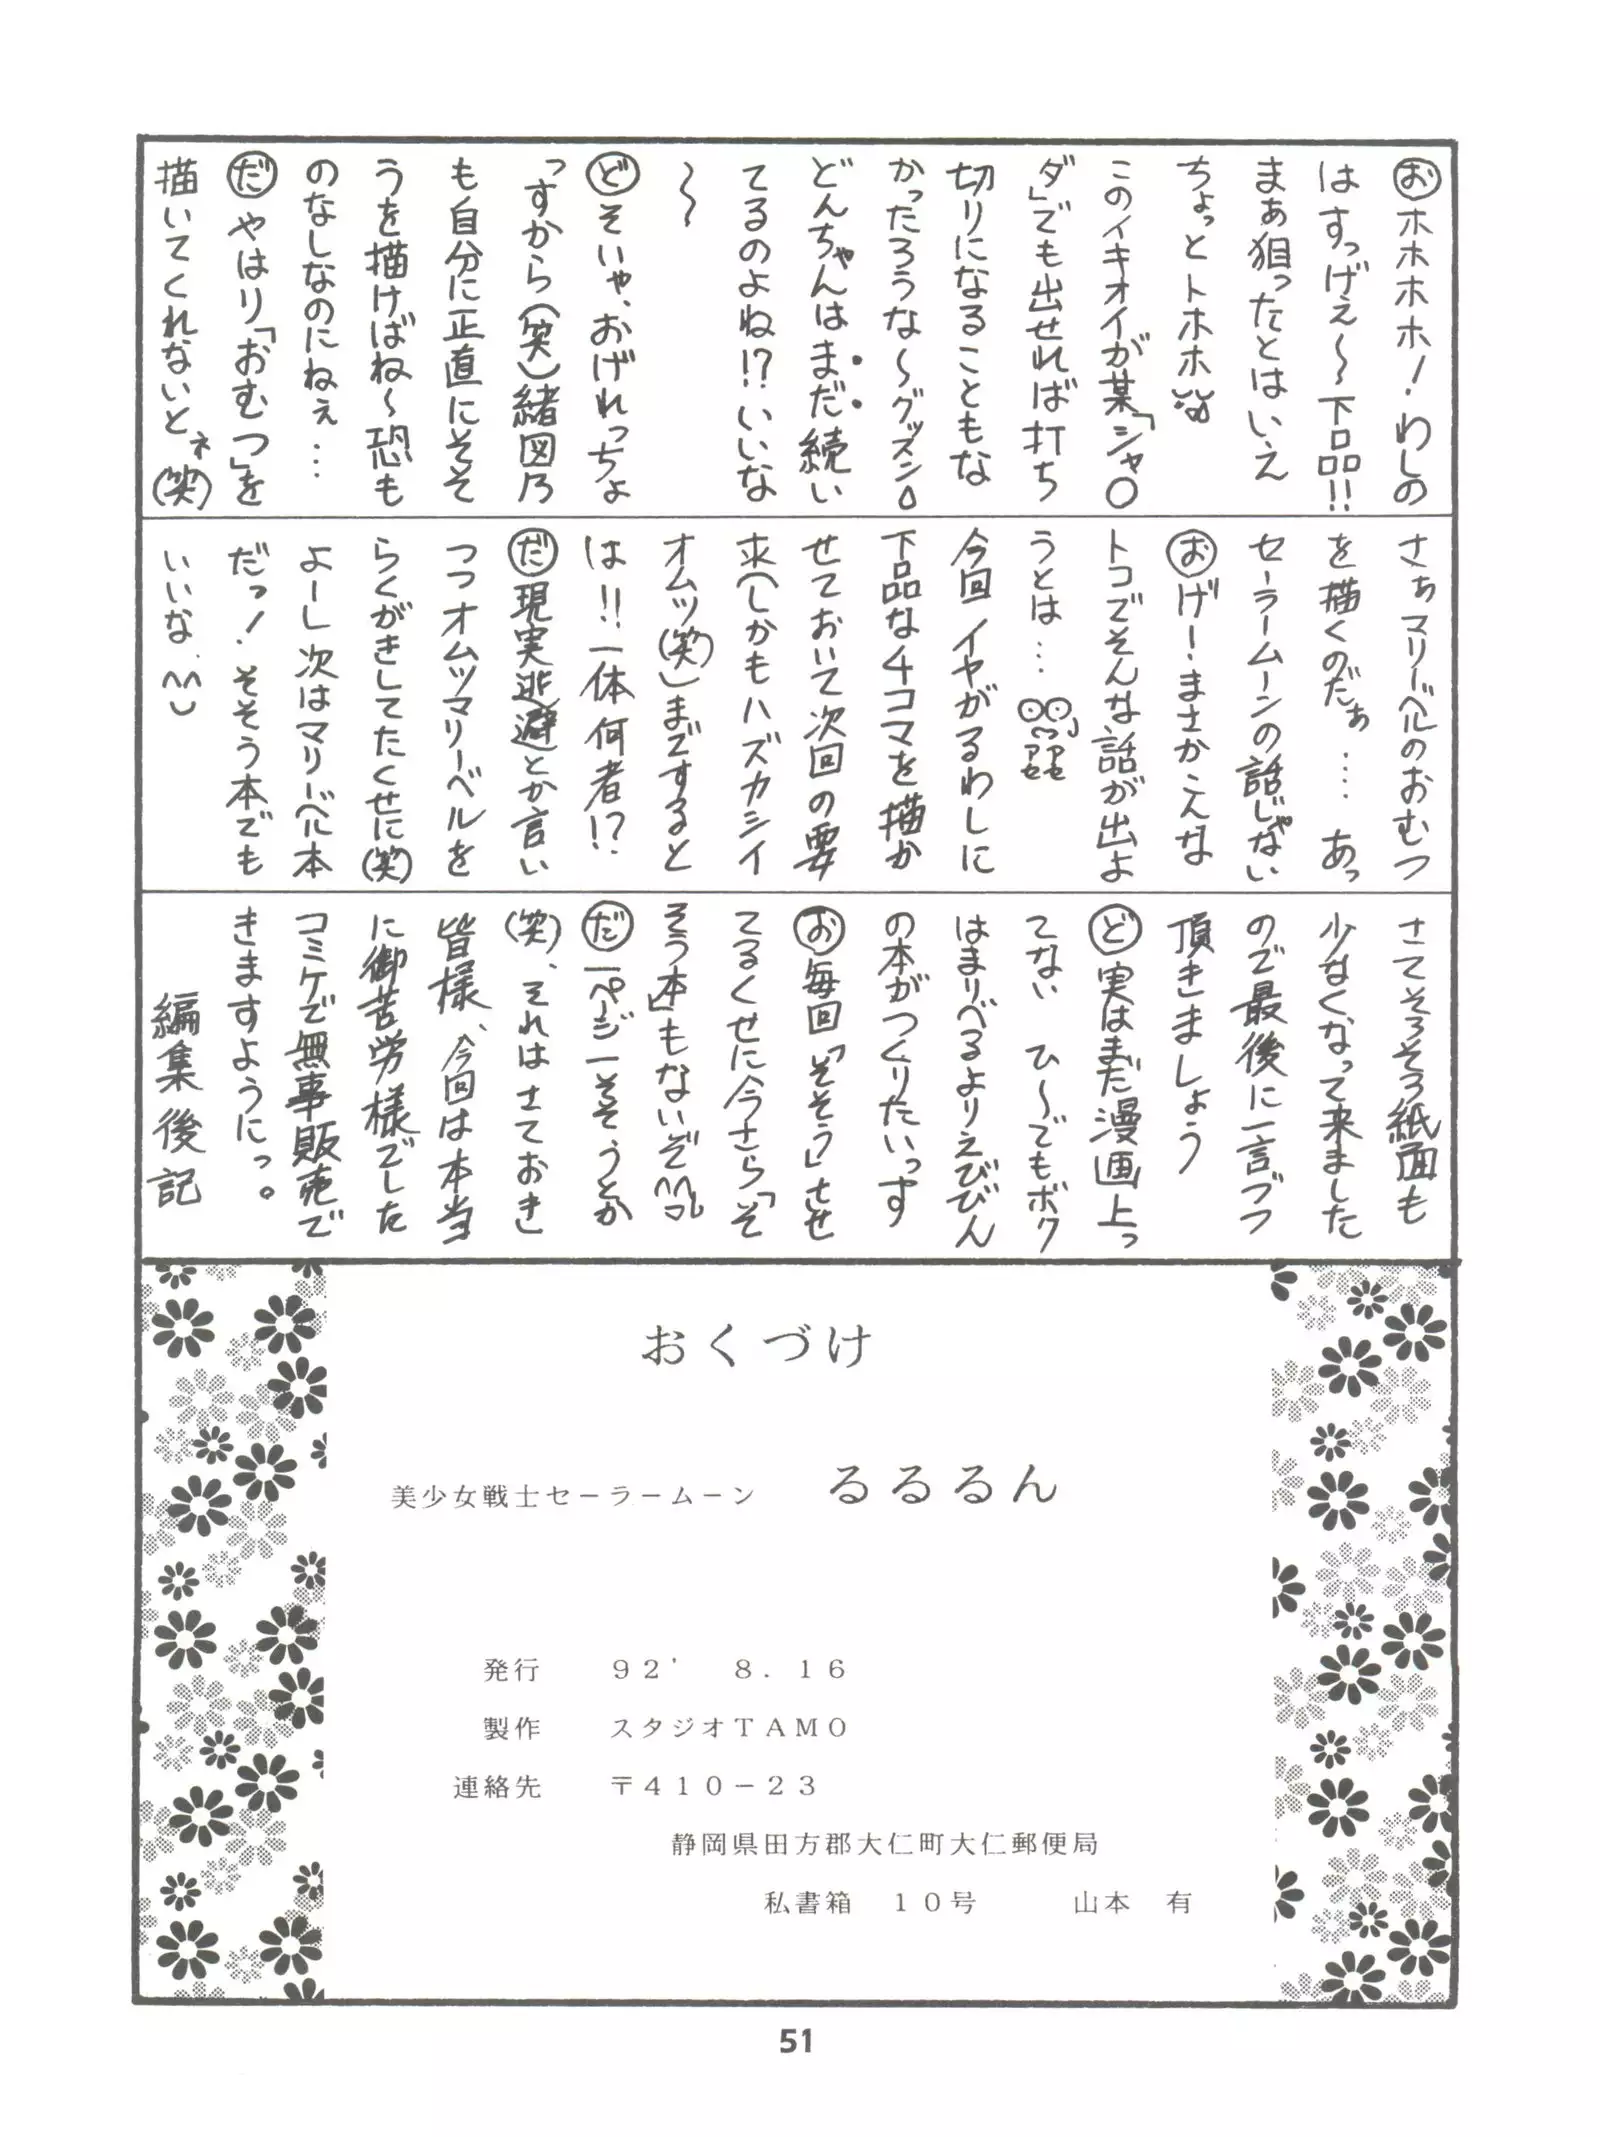 おホホホホ!わしの
はすっげぇ〜下品!!
まぁ狙ったとはいえ
ちょっとトホホ
このイキオイが某「シャ○
ダ」でも出せれば打ち
切りになることもな
かったろうな〜グッスン
どんちゃんはまだ続い
てるのよね!?いいな
〜〜
どそいや、おげれっちょ
っすから(笑)緒図乃
も自分に正直にそそ
うを描けばね〜恐も
のなしなのにねぇ…
だやはり「おむつ」を
描いてくれないとネ(笑)
さぁマリーベルのおむつ
を描くのだぁ…‥あっ
セーラームーンの話じゃない
おげー!まさかこんな
トコでそんな話が出よ
うとは…
今回イヤがるわしに
下品な4コマを描か
せておいて次回の要
求(しかもハズカシイ
オムツ(笑))までするとは!!一体何者!?
だ現実逃避とか言い
つつオムツマリーベルを
らくがきしてたくせに(笑)
よーし次はマリーベル本
だっ!そそう本でも
いいな.^^
さてそろそろ紙面も
少なくなって来ました
ので最後に一言づつ
頂きましょう
ど実はまだ漫画上っ
てない ひ〜でもボク
はまりべるよりえびびん
の本がつくりたいっす
お毎回「そそう」させ
てるくせに今さら「そ
そう本」もないぞ^^
だ一ページ一そそうとか
(笑)、それはさておき
皆様、今回は本当
に御苦労様でした
コミケで無事販売で
きますようにっ。
編集後記
おくづけ
美少女戦士セーラームーン るるるん
発行 92' 8.16
製作 スタジオTAMO
連絡先 〒410-23
静岡県田方郡大仁町大仁郵便局
私書箱 10号 山本 有
51